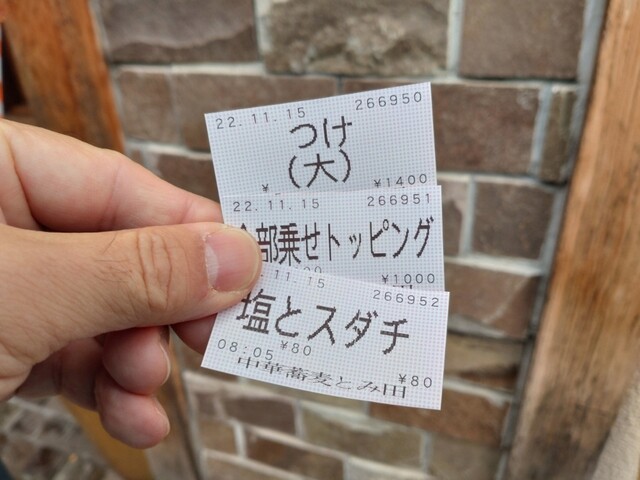 22.11.15 266950
つけ
(大)
¥ ¥1400
22.11.15 266951
全部乗せトッピング
¥1000
.11.15 266952
塩とスダチ
08:05 ¥80 ¥80
中華蕎麦とみ田